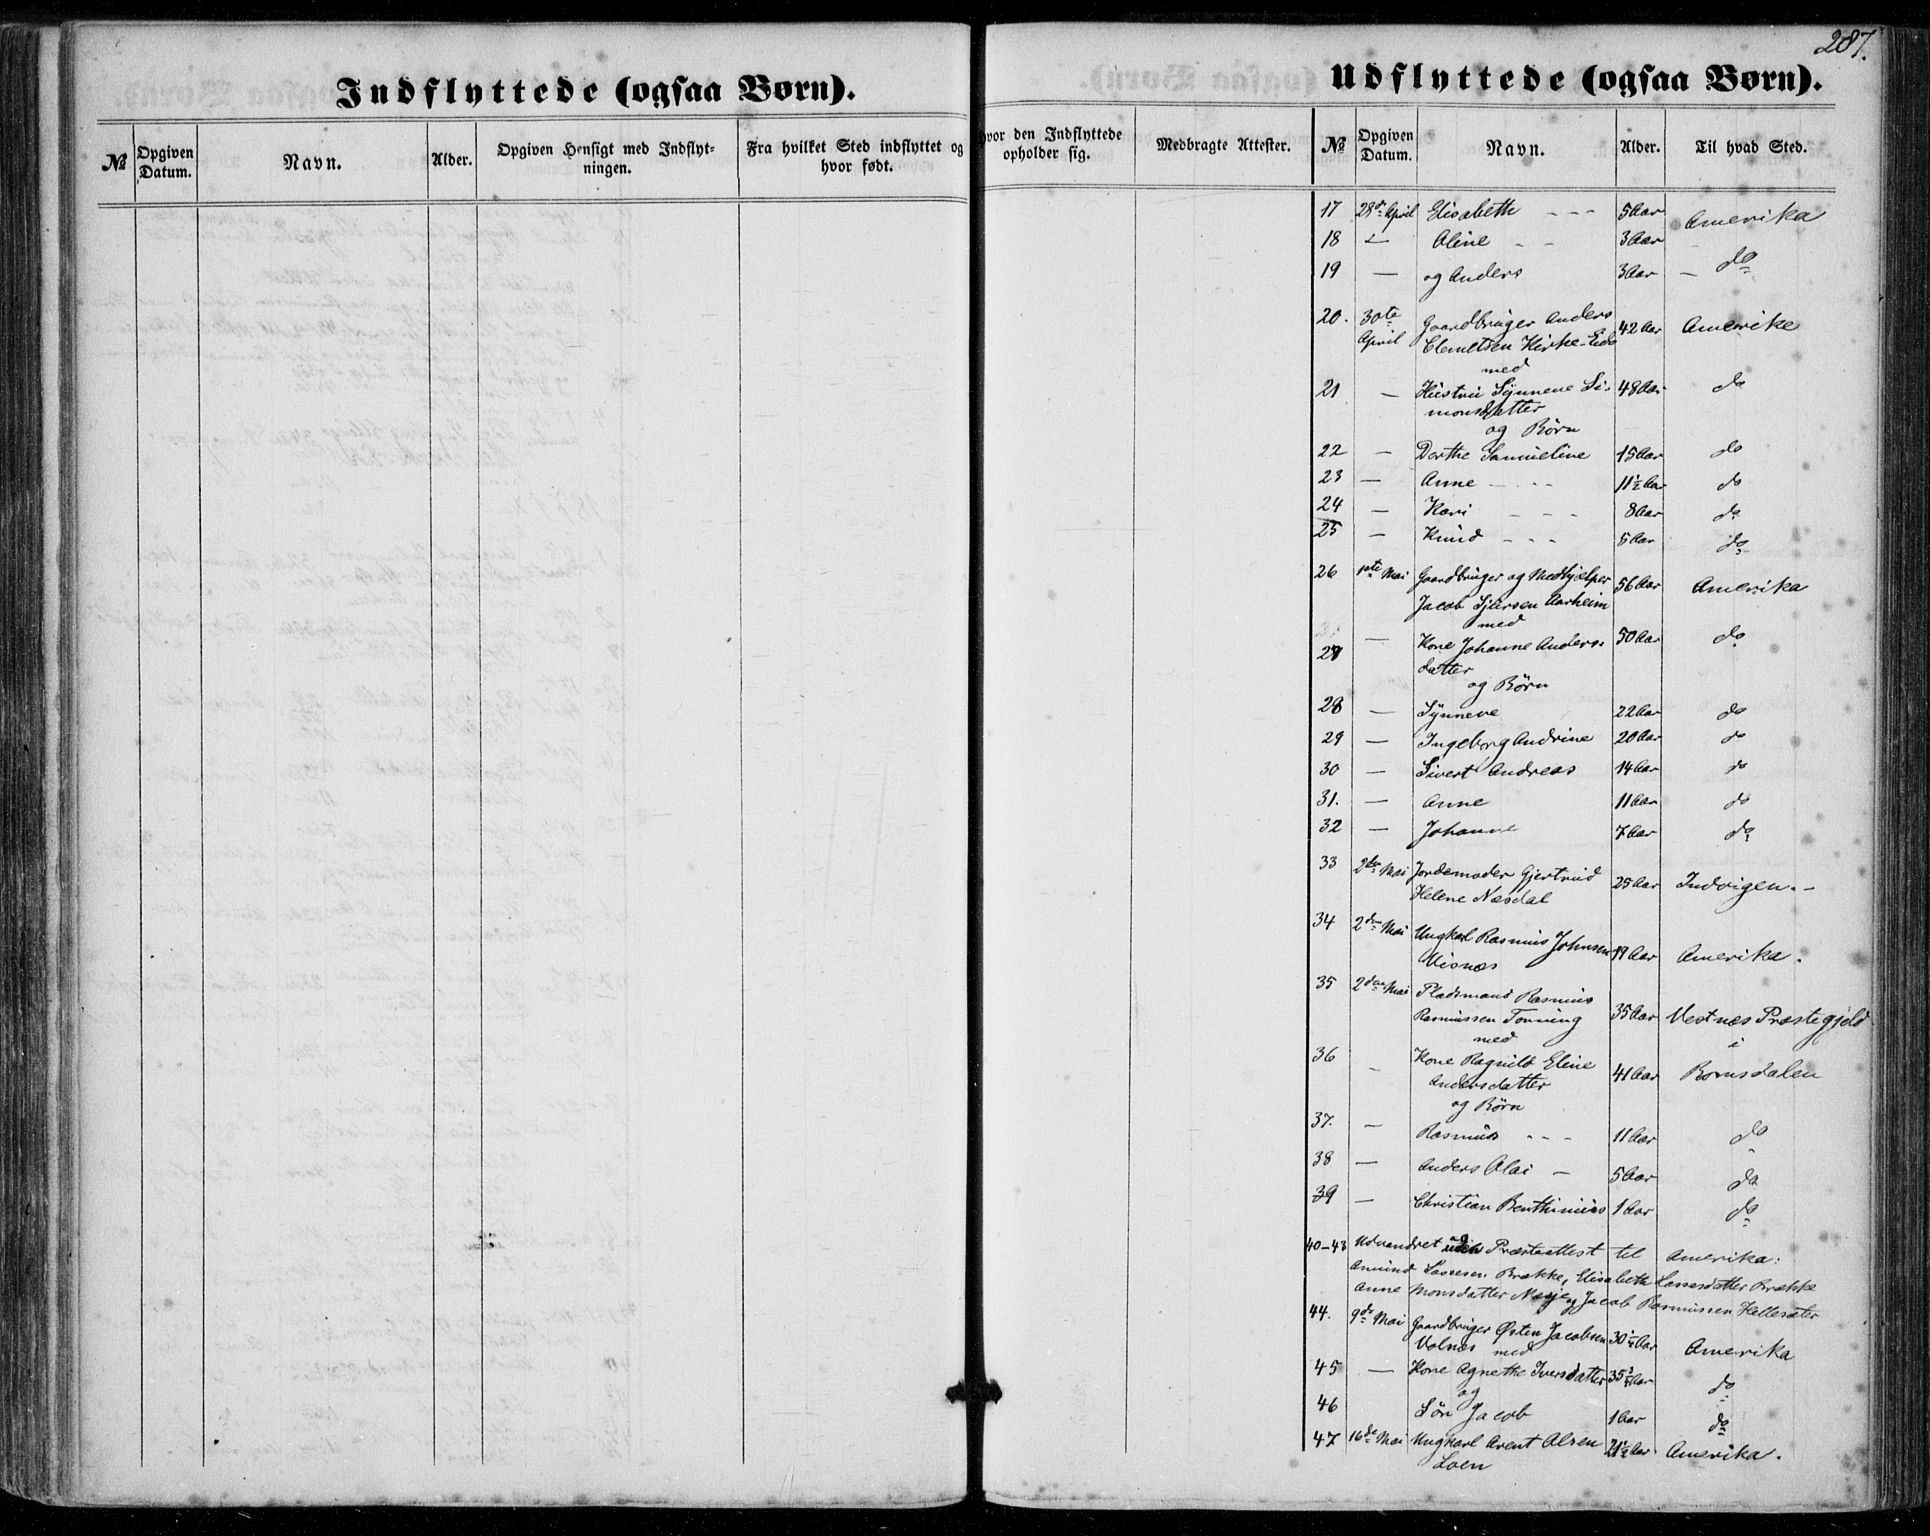 287.
Indflyttede (ogsaa Børn).
Udflyttede (ogsaa Børn).
№ Opgiven Datum. Navn. Alder. Opgiven Hensigt med Indflytningen. Fra hvilket Sted indflyttet og hvor født. hvor den Indflyttede opholder sig. Medbragte Attester.
№ Opgiven Datum. Navn. Alder. Til hvad Sted.
17 28de April Elisabeth - - - 5 Aar Amerika
18 " Oline - - 3 Aar do
19 — og Anders 3 Aar — do
20. 30te April Gaardbruger Anders 42 Aar Amerika
Clemetsen Kirke-Eide
med
21 — Hustru Synneve Si- 48 Aar do
monsdatter
og Børn
22 — Dorthe Samueline 15 Aar do
23 — Anne - - - 11½ Aar do
24 — Kari - - - 8 Aar do
25 — Knud - - - 5 Aar do
26 1ste Mai Gaardbruger og Medhjælper 56 Aar Amerika
Jacob Sjursen Aarheim
med
27 — Kone Johanne Anders- 50 Aar do
datter
og Børn
28 — Synneve 22 Aar do
29 — Ingeborg Andrine 20 Aar do
30 — Sivert Andreas 14 Aar do
31. — Anne 11 Aar do
32 — Johanne 7 Aar do
33 2den Mai Jordemoder Gjertrud 25 Aar Indvigen. -
Helene Næsdal
34 2den Mai Ungkarl Rasmus Johnsen 19 Aar Amerika.
Visnæs
35 2den Mai Pladsmand Rasmus
Rasmussen Tonning 35 Aar Vestnæs Præstegjeld
med i
36 — Kone Ragnild Eline 41 Aar Romsdalen
Andersdatter
og Børn
37. — Rasmus - - - 11 Aar do
38 — Anders Olai — 5 Aar do
39 — Christian Benthinius 1 Aar do
40-43 Udvandret uden Præsteattest til Amerika:
Amund Lassesen Brække, Elisabeth Lassesdatter Brække
Anne Monsdatter Nesje og Jacob Rasmussen Hellesæter
44. 9de Mai Gaardbruger Østen Jacobsen 30½ Aar Amerika
Volnæs med
45 — Kone Agnethe Iversdatter 35½ Aar do
og
46 Søn Jacob 1 Aar do
47 16de Mai Ungkarl Arent Olsen 21½ Aar Amerika.
Loen